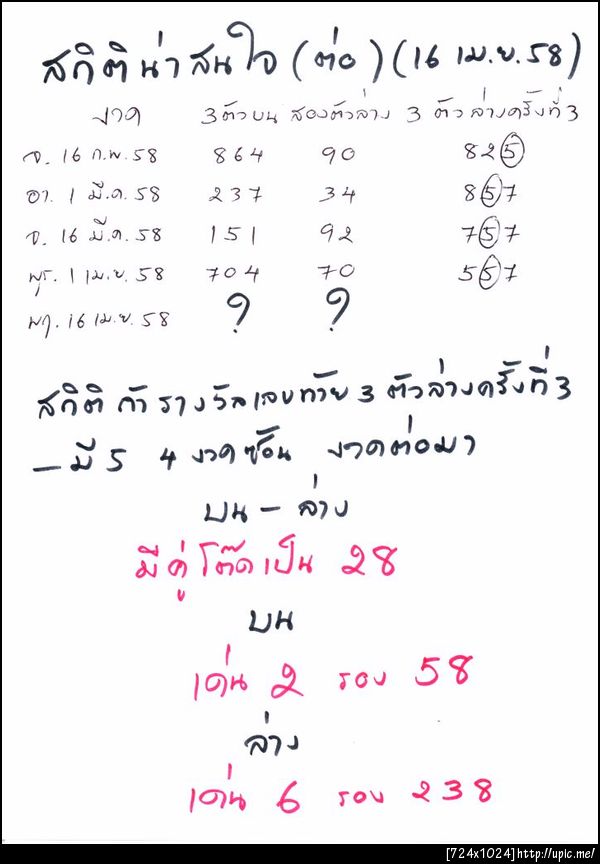 สถิติน่าสนใจ (ต่อ) (16 เม.ย. 58)
งวด 3 ตัวบน สองตัวล่าง 3 ตัวล่างครั้งที่ 3
จ. 16 ก.พ. 58 864 90 825
อา. 1 มี.ค. 58 237 34 857
จ. 16 มี.ค. 58 151 92 757
พุธ. 1 เม.ย. 58 704 70 557
พฤ. 16 เม.ย. 58 ? ?
สถิติ ถ้า รางวัลเลขท้าย 3 ตัวล่างครั้งที่ 3
- มี 5 4 งวดซ้อน งวดต่อมา
บน - ล่าง
มีคู่โต๊ดเป็น 28
บน
เด่น 2 รอง 58
ล่าง
เด่น 6 รอง 238
[724x1024]http://upic.me/